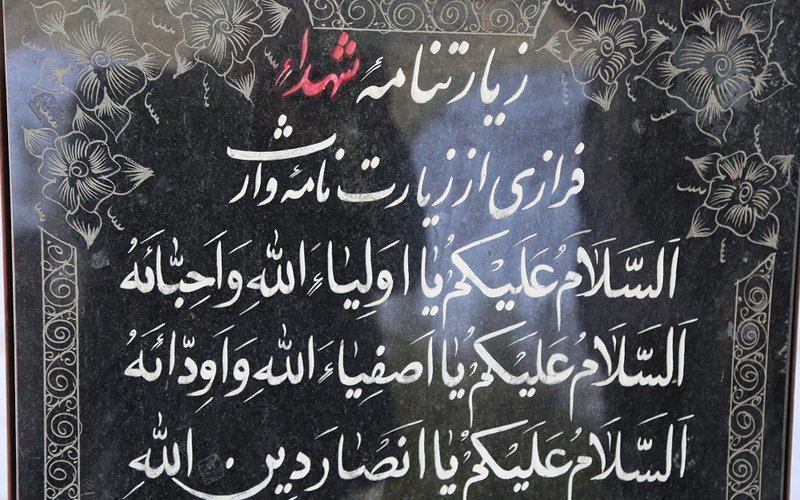 زیارتنامهٔ شهداء
فرازی از زیارت نامهٔ وارث
اَلسَّلَامُ عَلَیکُم یٰا اَولِیٰاءَ اللهِ وَ اَحِبّٰائَهُ
اَلسَّلَامُ عَلَیکُم یٰا اَصفِیٰاءَ اللهِ وَ اَوِدّٰائَهُ
اَلسَّلَامُ عَلَیکُم یٰا اَنصٰارَ دِینِ اللهِ